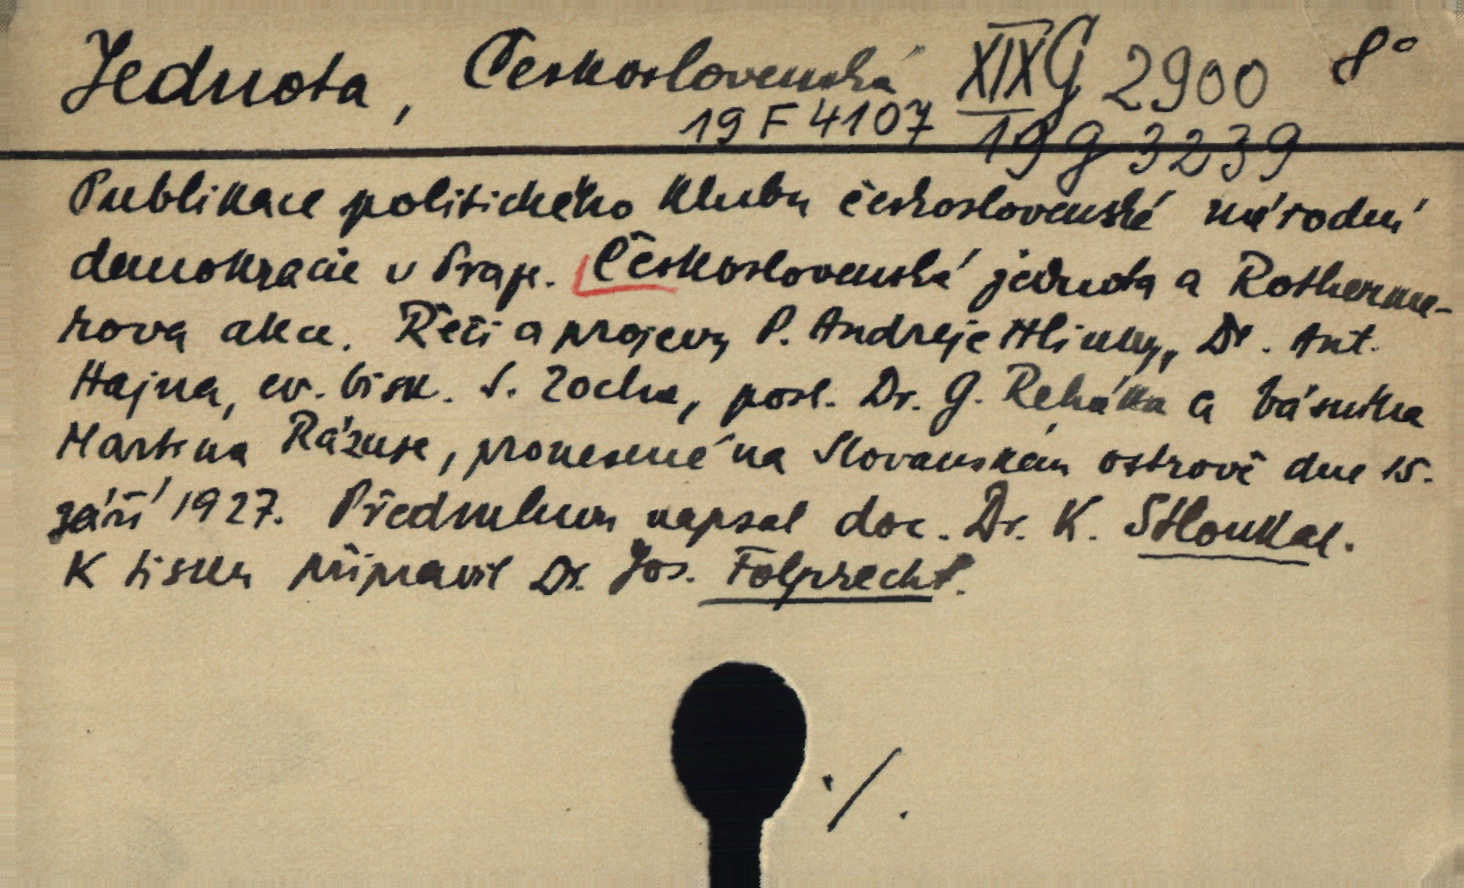 Jednota, Československá XIX G 2900 8°
19 F 4107 19 g 3239
Publikace politického klubu československé národní
demokracie v Praze. Československá jednota a Rotherme-
rova akce. Řeči a projevy P. Andreje Hlinky, Dr. Ant.
Hajna, ev. bisk. S. Zocha, posl. Dr. G. Řeháka a básníka
Martina Rázuse, pronesené na Slovanském ostrově dne 15.
září 1927. Předmluvu napsal doc. Dr. K. Stloukal.
K tisku připravil Dr. Jos. Folprecht.
./.